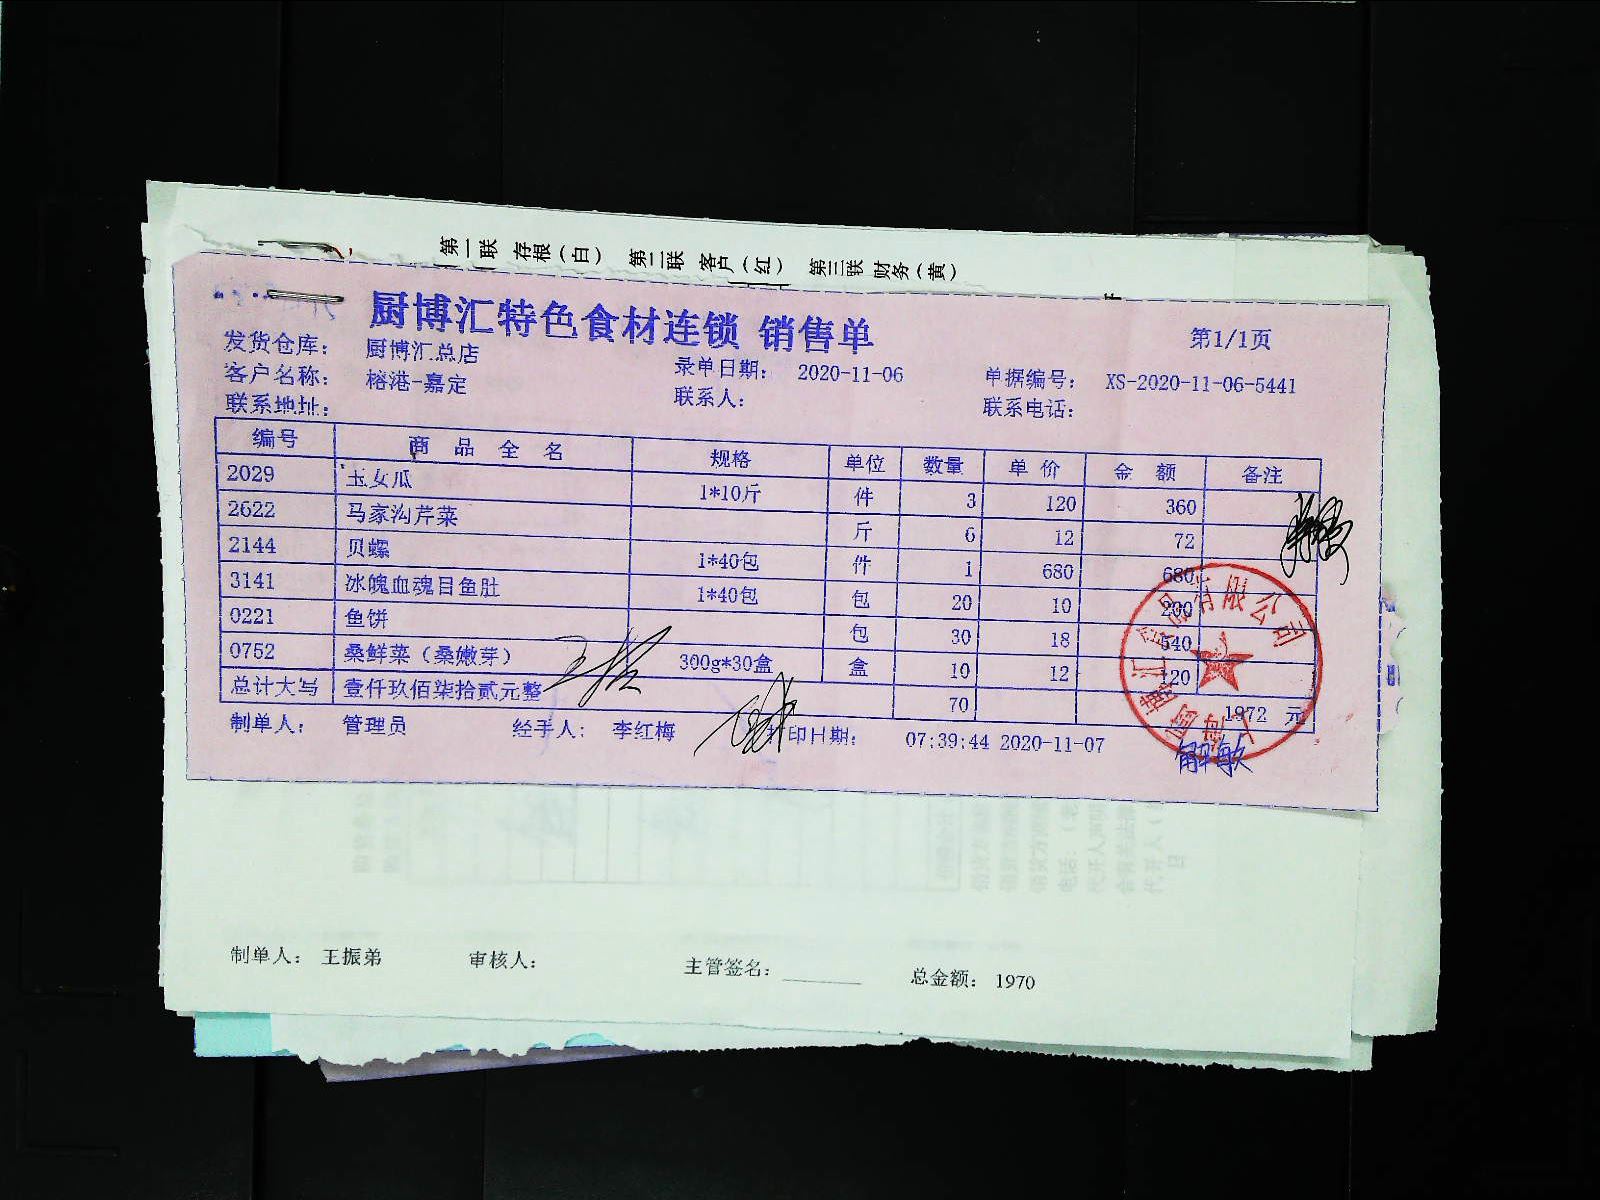 第一联 存根(白) 第二联 客户(红) 第三联 财务(黄)
厨博汇特色食材连锁 销售单
第1/1页
发货仓库: 厨博汇总店 录单日期: 2020-11-06 单据编号: XS-2020-11-06-5441
客户名称: 榕港-嘉定 联系人: 联系电话:
联系地址:
编号 商品全名 规格 单位 数量 单价 金额 备注
2029 玉女瓜 1*10斤 件 3 120 360
2622 马家沟芹菜 斤 6 12 72
2144 贝螺 1*40包 件 1 680 680
3141 冰魄血魂目鱼肚 1*40包 包 20 10 200
0221 鱼饼 包 30 18 540
0752 桑鲜菜(桑嫩芽) 300g*30盒 盒 10 12 120
总计大写 壹仟玖佰柒拾贰元整 70 1972 元
制单人: 管理员 经手人: 李红梅 打印日期: 07:39:44 2020-11-07
制单人: 王振弟 审核人: 主管签名: 总金额: 1970